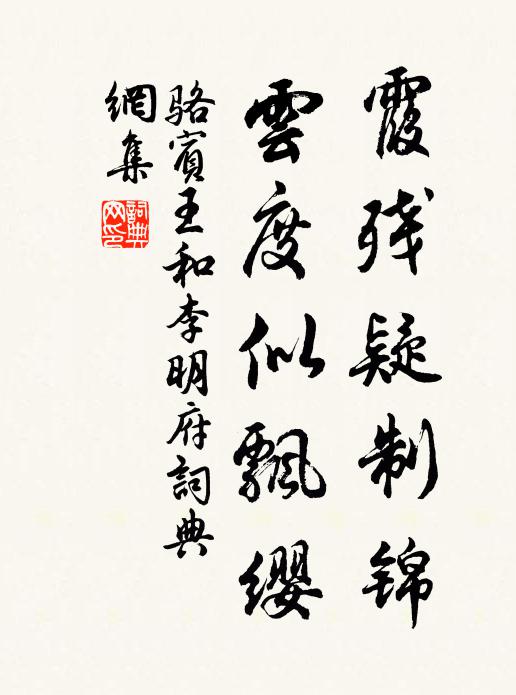 霞残疑制锦
雲度似飄纓
駱賓王和李明府詞典
網集
詞典
网印